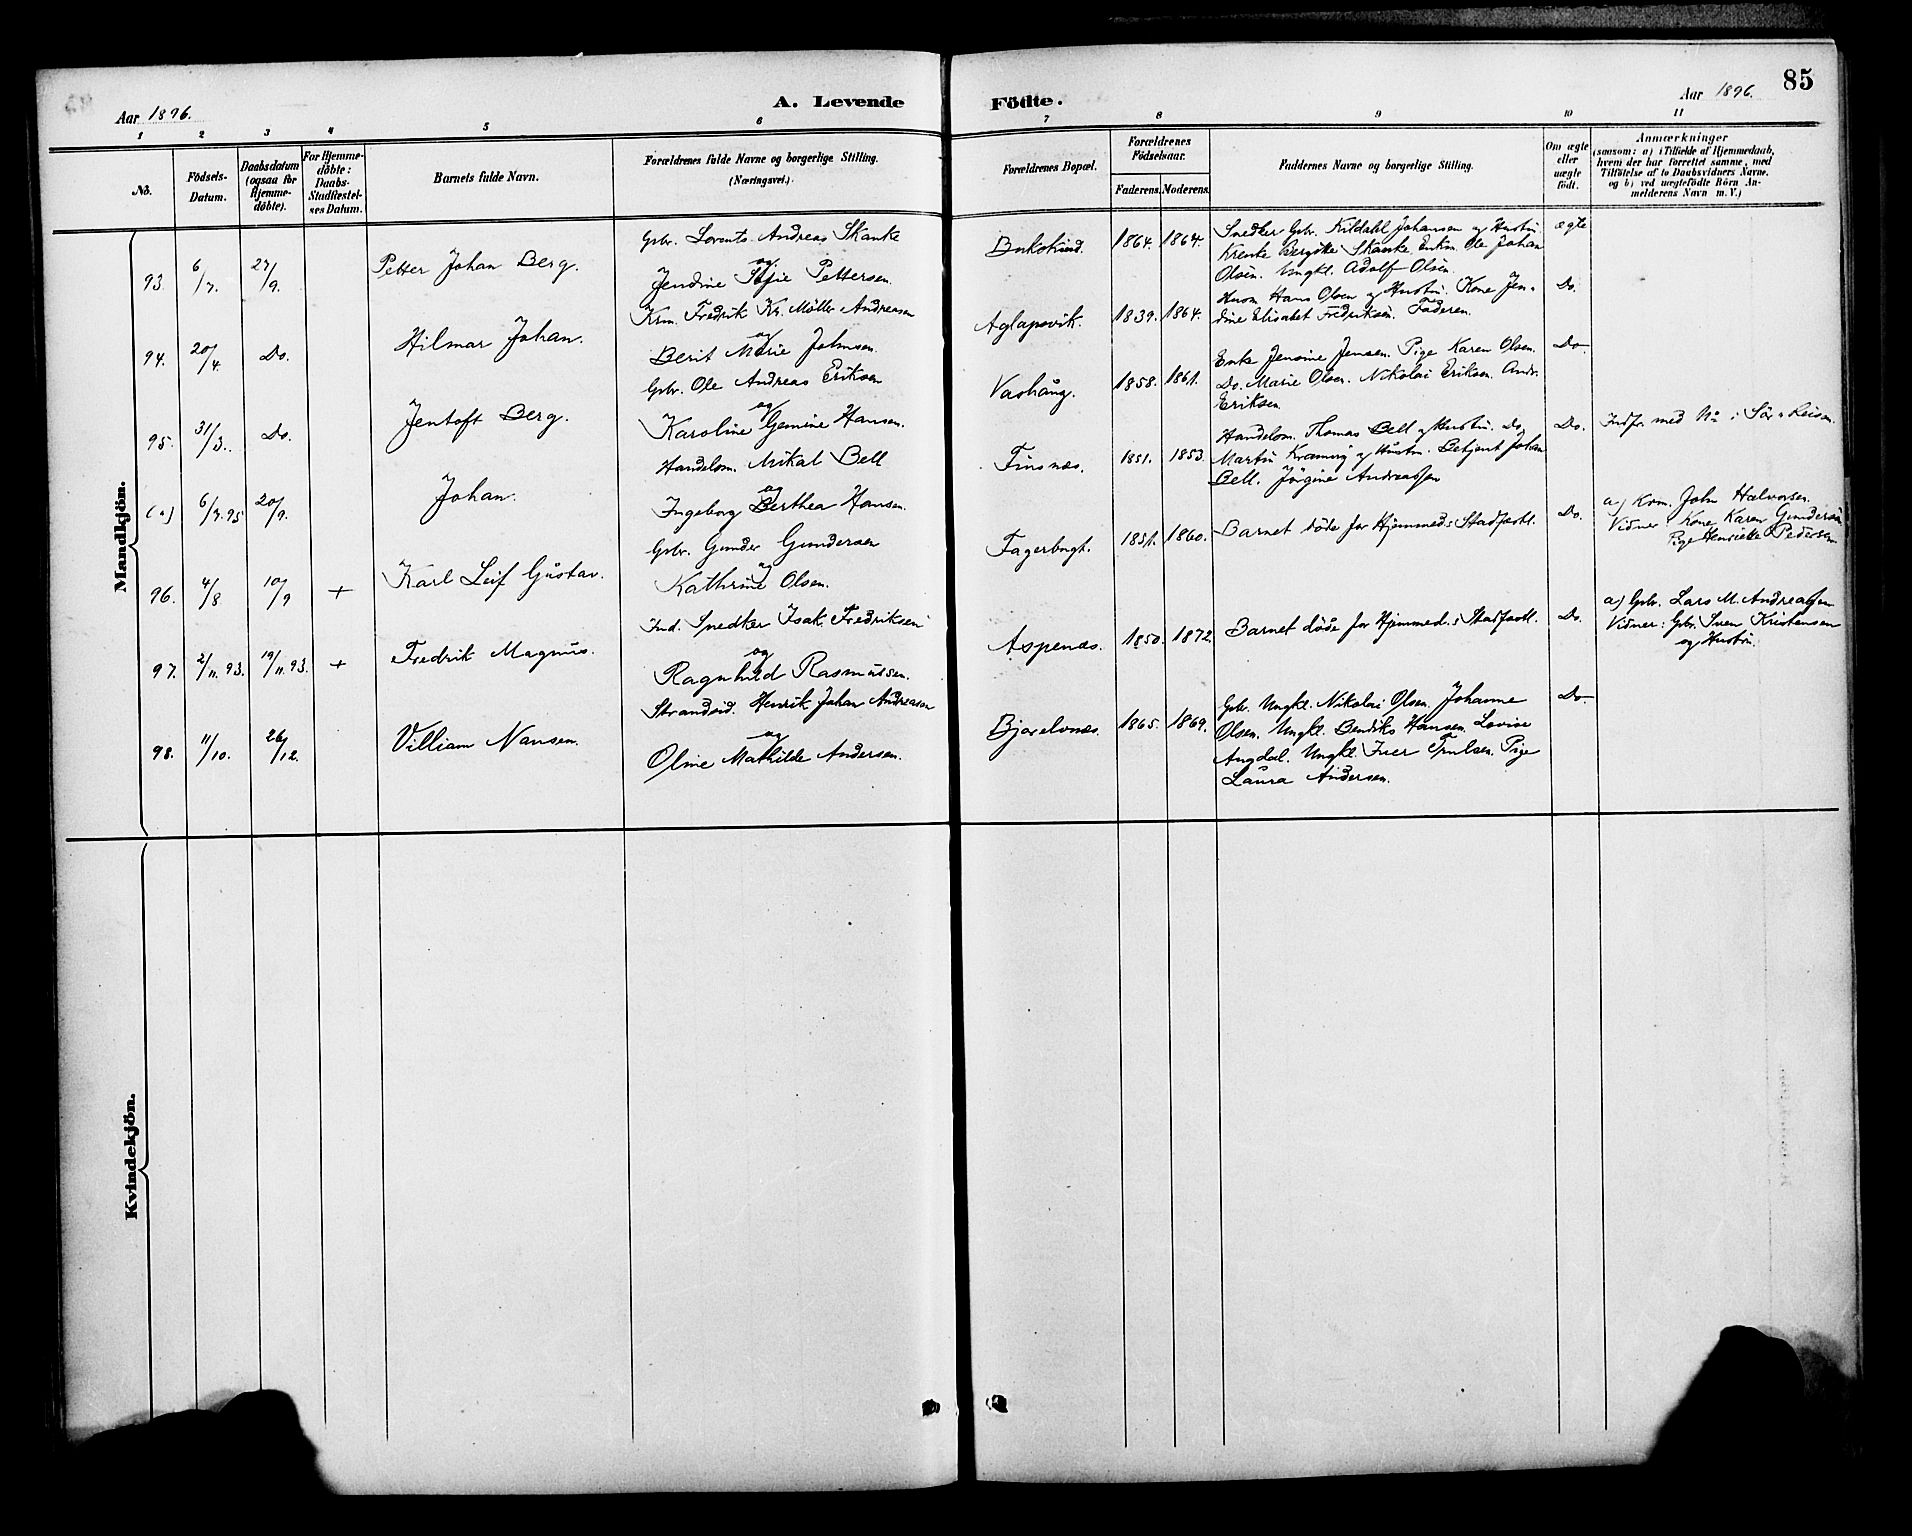 85
Aar 1896.
A. Levende Födte.
Aar 1896.
1 2 3 4 5 6 7 8 9 10 11
No.
Fødsels-
Datum.
Daabsdatum
(ogsaa for
Hjemme-
døbte).
For Hjemme-
døbte:
Daabs-
Stadfæstel-
ses Datum.
Barnets fulde Navn.
Forældrenes fulde Navne og borgerlige Stilling.
(Næringsvei.)
Forældrenes Bopæl.
Forældrenes
Födselsaar.
Faderens. Moderens.
Faddernes Navne og borgerlige Stilling.
Om ægte
eller
uægte
født.
Anmærkninger
(saasom: a) i Tilfælde af Hjemmedaab,
hvem der har forrettet samme, med
Tilføielse af to Daabsvidners Navne,
og b) ved uægtefödte Börn An-
melderens Navn m. V.)
Mandkjön.
93. 6/7. 27/9. Petter Johan Berg.
Gbr. Lorents Andreas Skanke
og
Jendine Pettersen.
1864. 1864.
Snedker Gbr. Kildahl Johansen og Hustru
Krenke Bergitte Skanke. Enkm. Ole Johan
Olsen. Ungkl. Adolf Olsen.
ægte
94. 20/4. Do. Hilmar Johan.
Krm. Fredrik Kr. Møller Andreasen
og
Berit Marie Johnsen.
Aglapsvik. 1839. 1864.
Husm. Hans Olsen og Hustru. Kone Jen-
dine Elisabet Fredriksen. Faderen.
Do.
95. 3/3. Do. Jentoft Berg.
Gbr. Ole Andreas Eriksen
og
Karoline Gemine Hansen.
Vashaug. 1858. 1861.
Enke Jensine Jensen. Pige Karen Olsen.
Do. Marie Olsen. Nikolai Eriksen. Andr.
Eriksen.
Do.
(a) 6/7.95 20/9. Johan.
Handelsm. Mikal Bell
og
Ingeborg Berthea Hansen.
Finsnæs. 1851. 1853.
Handelsm. Thomas Bell og Hustru. Do.
Martin Kræmer og Hustru. Betjent Johan
Bell. Jørgine Andreassen
Do.
Indfr. med No i
96. 4/8. 10/9 + Karl Leif Gustav.
Gbr. Gunder Gundersen
og
Kathrine Olsen.
Fagerbugt. 1851. 1860.
Barnet døde før Hjemmed:s Stadfæstl.
Do.
a) Krm. John Halvorsen.
Vidner: Kone Karen Gundersen
Pige Henriette Pedersen
97. 2/11.93. 19/11.93. + Fredrik Magnus.
Ind. Snedker Isak Fredriksen
og
Ragnhild Rasmussen.
Aspenæs. 1850. 1872.
Barnet døde før Hjemmed:s Stadfæstl.
Do.
a) Gbr. Lars M. Andreassen
Vidner: Gbr. Sven Kristensen
og Hustru.
98. 11/10. 26/12. Villiam Nansen.
Strandsid. Henrik Johan Andreasen
og
Oline Mathilde Andersen.
Bjorelvnæs. 1865. 1869.
Gbr. Ungkl. Nikolai Olsen. Johanne
Olsen. Ungkl. Bendiks Hansen. Lovise
Angdal. Ungkl. Iver Pige
Laura Andersen.
Do.
Kvindekjön.